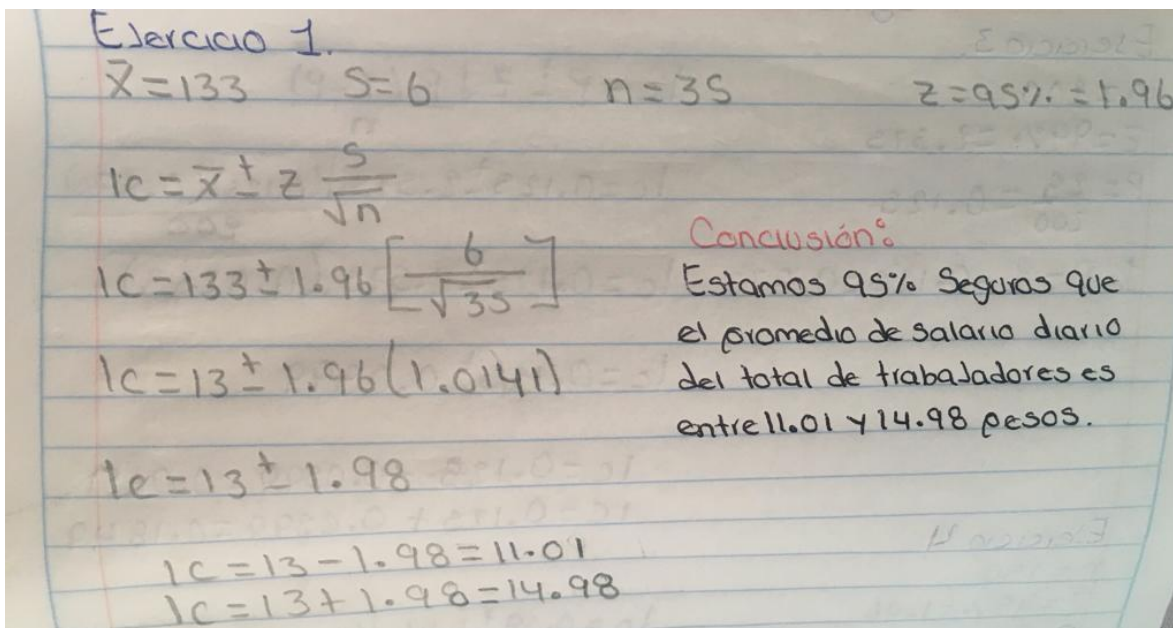 Ejercicio 1.
x̄ = 133 S = 6 n = 35 z = 95% = 1.96
Ic = x̄ ± z S/√n
Ic = 133 ± 1.96 [6/√35]
Ic = 13 ± 1.96 (1.0141)
Ic = 13 ± 1.98
Ic = 13 - 1.98 = 11.01
Ic = 13 + 1.98 = 14.98
Conclusión:
Estamos 95% Seguros que
el promedio de salario diario
del total de trabajadores es
entre 11.01 y 14.98 pesos.